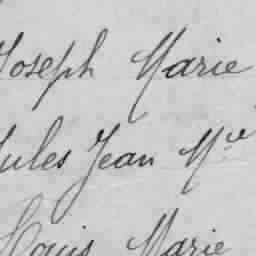 Joseph Marie
Jules Jean Mie
Louis Marie